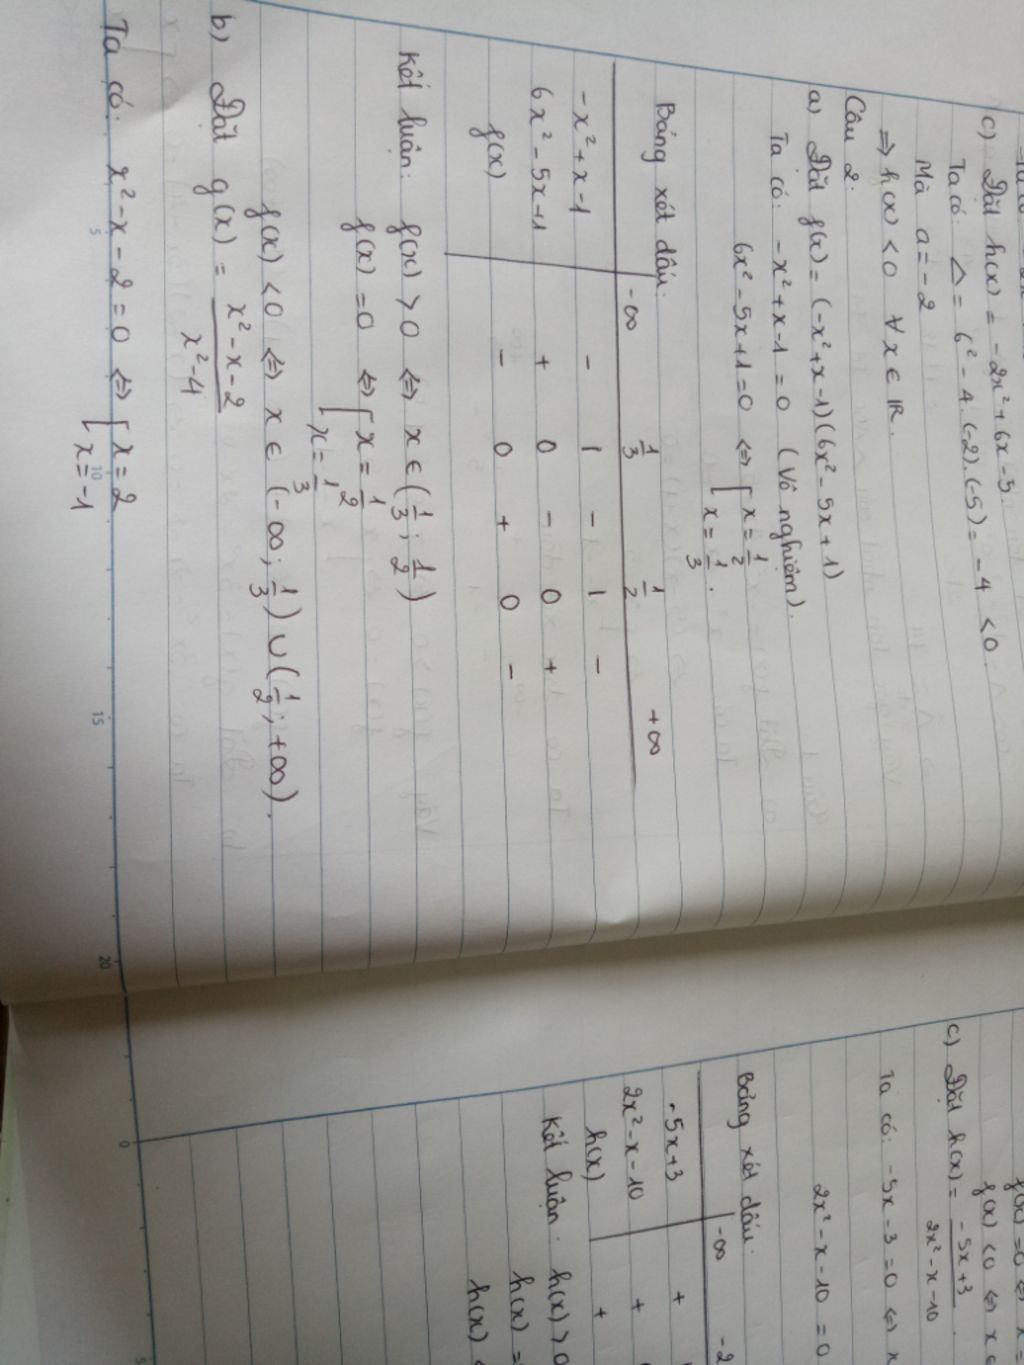 c) Đặt h(x) = -2x² + 6x - 5.
Ta có: Δ = 6² - 4.(-2).(-5) = -4 < 0
Mà a = -2
⇒ h(x) < 0 ∀ x ∈ R.
Câu 2:
a) Đặt f(x) = (-x² + x - 1)(6x² - 5x + 1)
Ta có: -x² + x - 1 = 0 (Vô nghiệm).
6x² - 5x + 1 = 0 ⇔ [ x = 1/2
x = 1/3.
Bảng xét dấu:
-∞ 1/3 1/2 +∞
-x² + x - 1 - | - | -
6x² - 5x + 1 + 0 - 0 +
f(x) - 0 + 0 -
Kết luận: f(x) > 0 ⇔ x ∈ (1/3; 1/2)
f(x) = 0 ⇔ [ x = 1/2
x = 1/3
f(x) < 0 ⇔ x ∈ (-∞; 1/3) ∪ (1/2; +∞).
b) Đặt g(x) = x² - x - 2 / x² - 4
Ta có: x² - x - 2 = 0 ⇔ [ x = 2
x = -1
5 10 15 20
f(x) < 0 ⇔ x
c) Đặt h(x) = -5x + 3 / 2x² - x - 10
Ta có: -5x - 3 = 0 ⇔ x
2x² - x - 10 = 0
Bảng xét dấu:
-∞ -2
-5x + 3 +
2x² - x - 10 +
h(x) +
Kết luận: h(x) > 0
h(x) =
h(x)
0 5